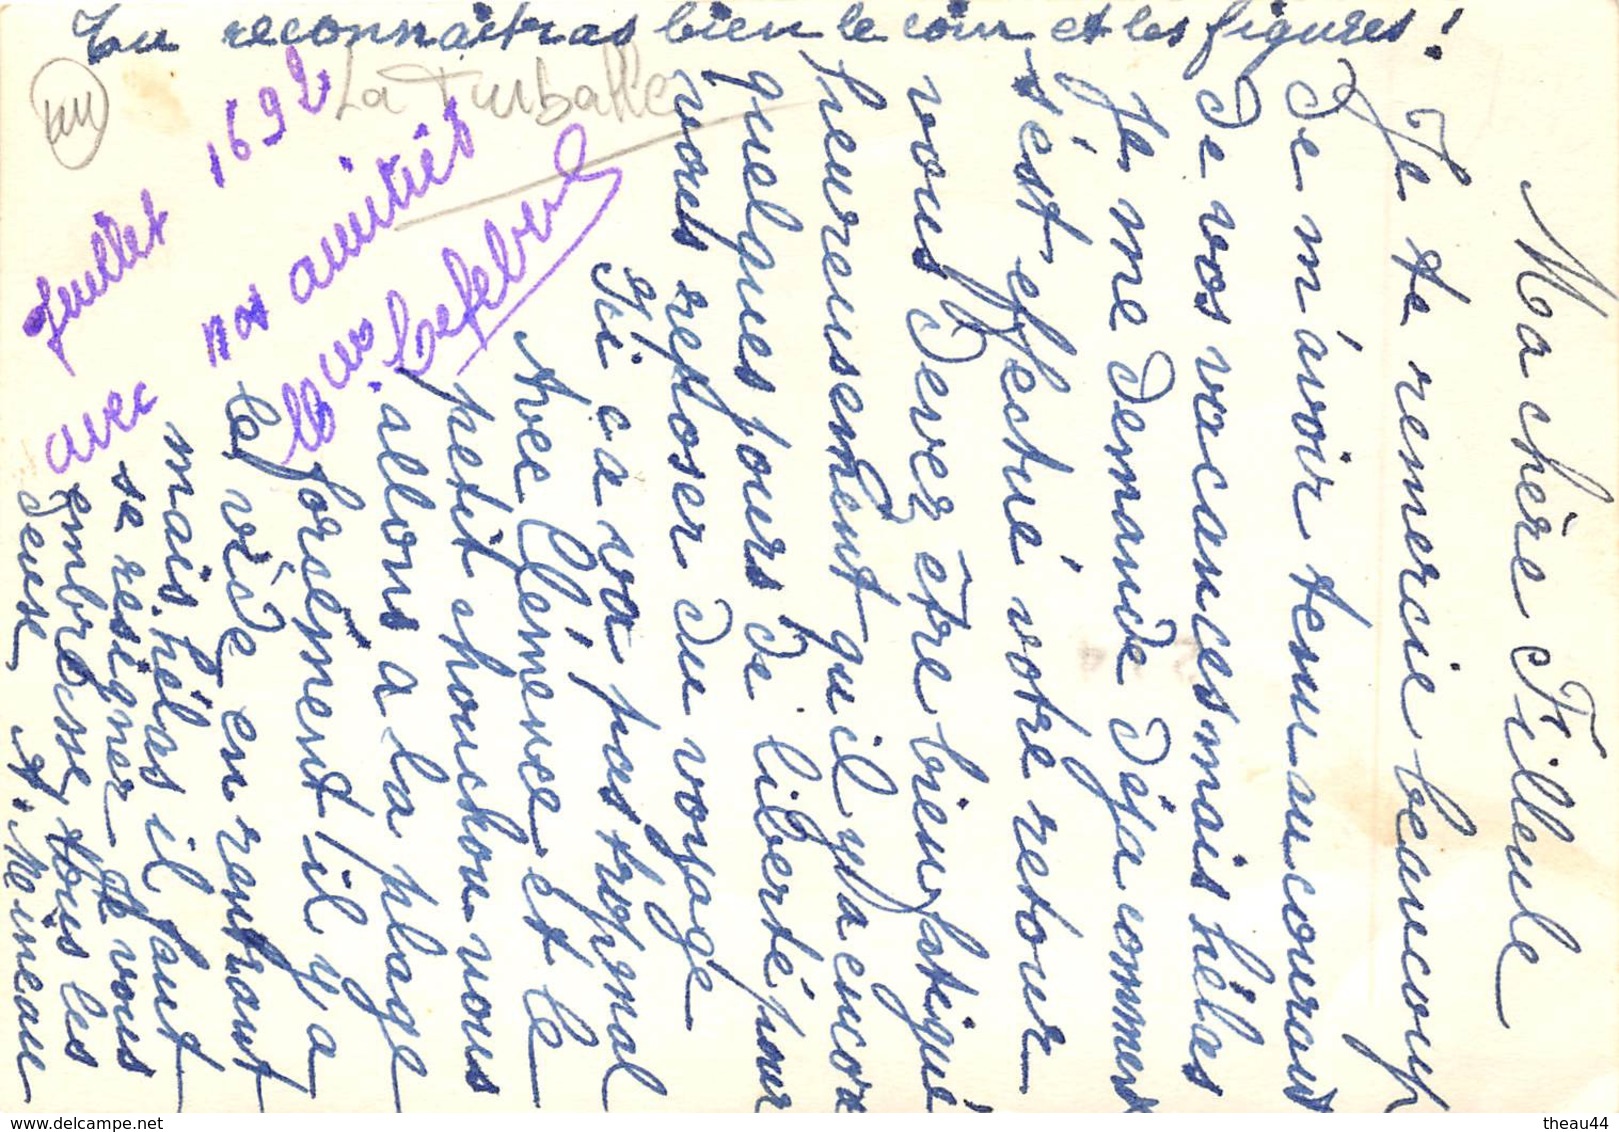 Tu reconnaîtras bien le coin et les figures !
La Turballe
Juillet 1692
avec nos amitiés
Lefebvre
Ma chère Filleule
Je te remercie beaucoup
de m'avoir tenu au courant
de vos vacances mais hélas
Je me demande déja comment
s'est effectué votre retour
vous devez être bien fatigué
heureusement qu'il y a encore
quelques jours de liberté pour
vous reposer du voyage
Ici ca va pas trop mal
Avec Clémence et le
petit chouchou nous
allons a la plage
forsément il y a
le vide en rentrant
mais hélas il faut
se resigner - A vous
embrasse tous les
deux A. Mineau
theau44